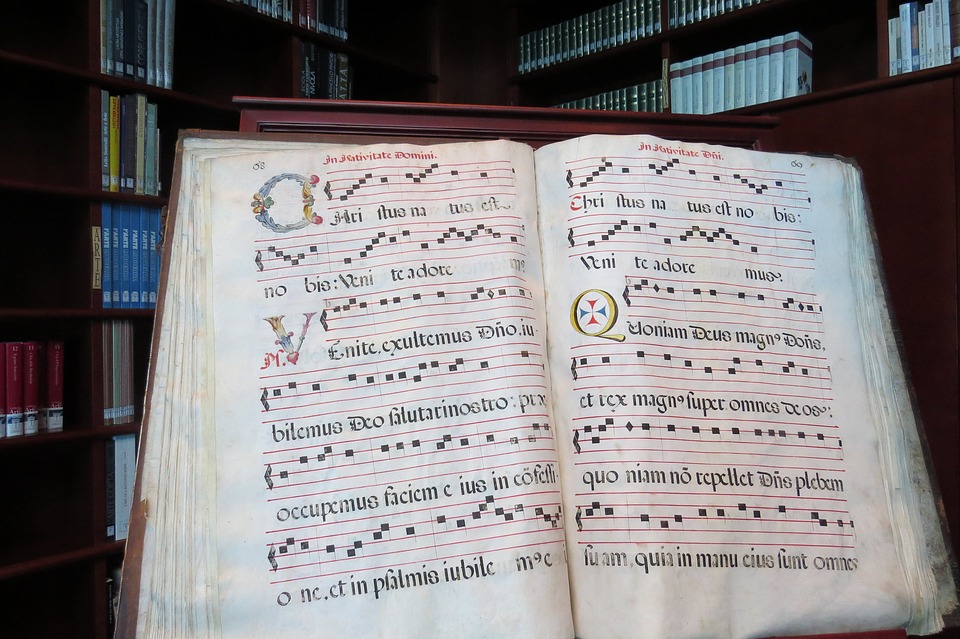 68
In Nativitate Domini.
CHri stus na tus est
no bis: Veni te adore m9
Ps. VEnite, exultemus Dño, iu-
bilemus Deo salutari nostro: præ
occupemus faciem e ius in cõfessi-
o ne, et in psalmis iubile m9 e
In Nativitate Dñi.
69
Chri stus na tus est no bis:
Veni te adore mus:
Quoniam Deus magn9 Doñs,
et rex magn9 super omnes deos:
quo niam nõ repellet Dñs plebem
su am, quia in manu eius sunt omnes
ARTE
ARTE
ARTE
ARTE
ARTE
ARTE